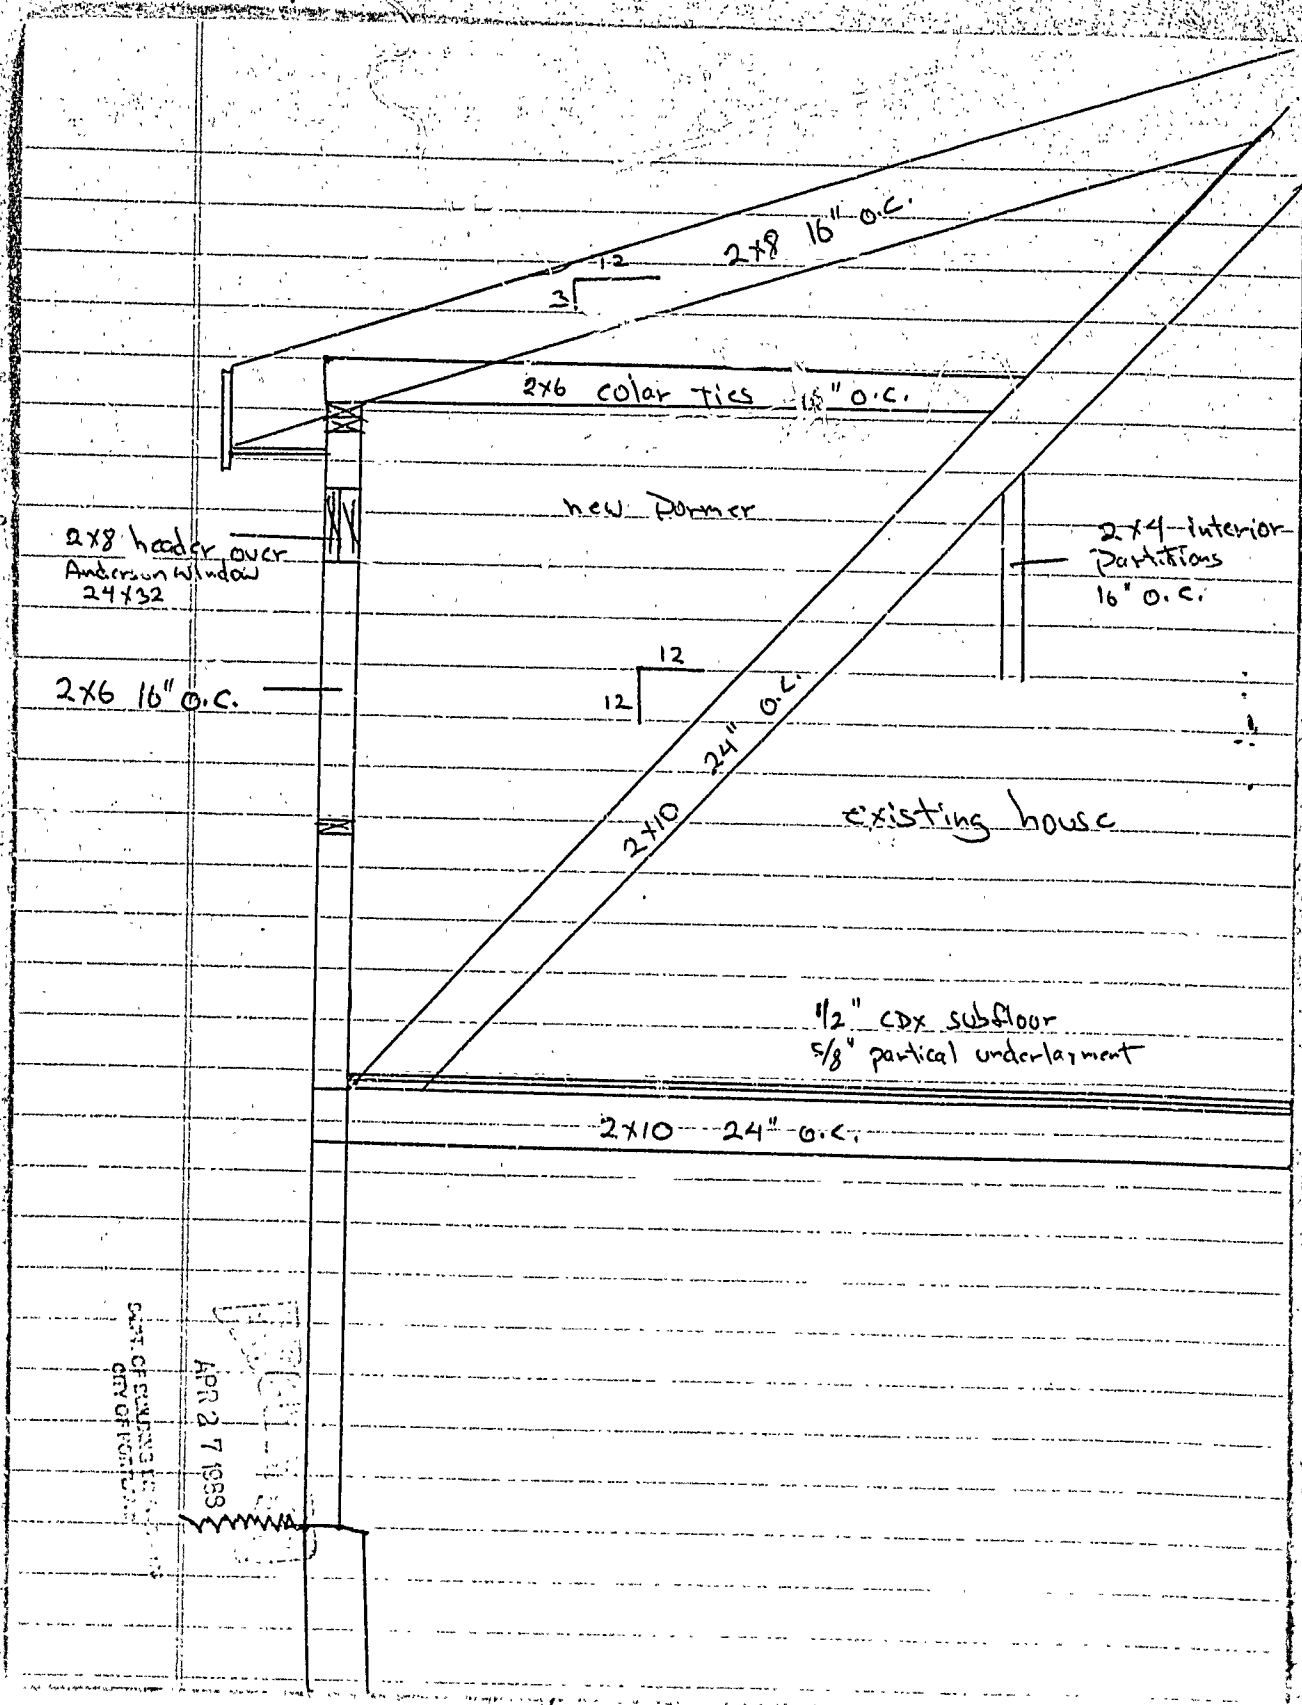 2x8 16" O.C.
12
3
2x6 colar ties 16" O.C.
new Dormer
2x8 header over
Anderson Window
24x32
2x4 interior
Partitions
16" O.C.
2x6 16" O.C.
12
12
2x10 24" O.C.
existing house
1/2" CDX subfloor
5/8" partical underlayment
2x10 24" O.C.
APR 27 1988
CITY OF